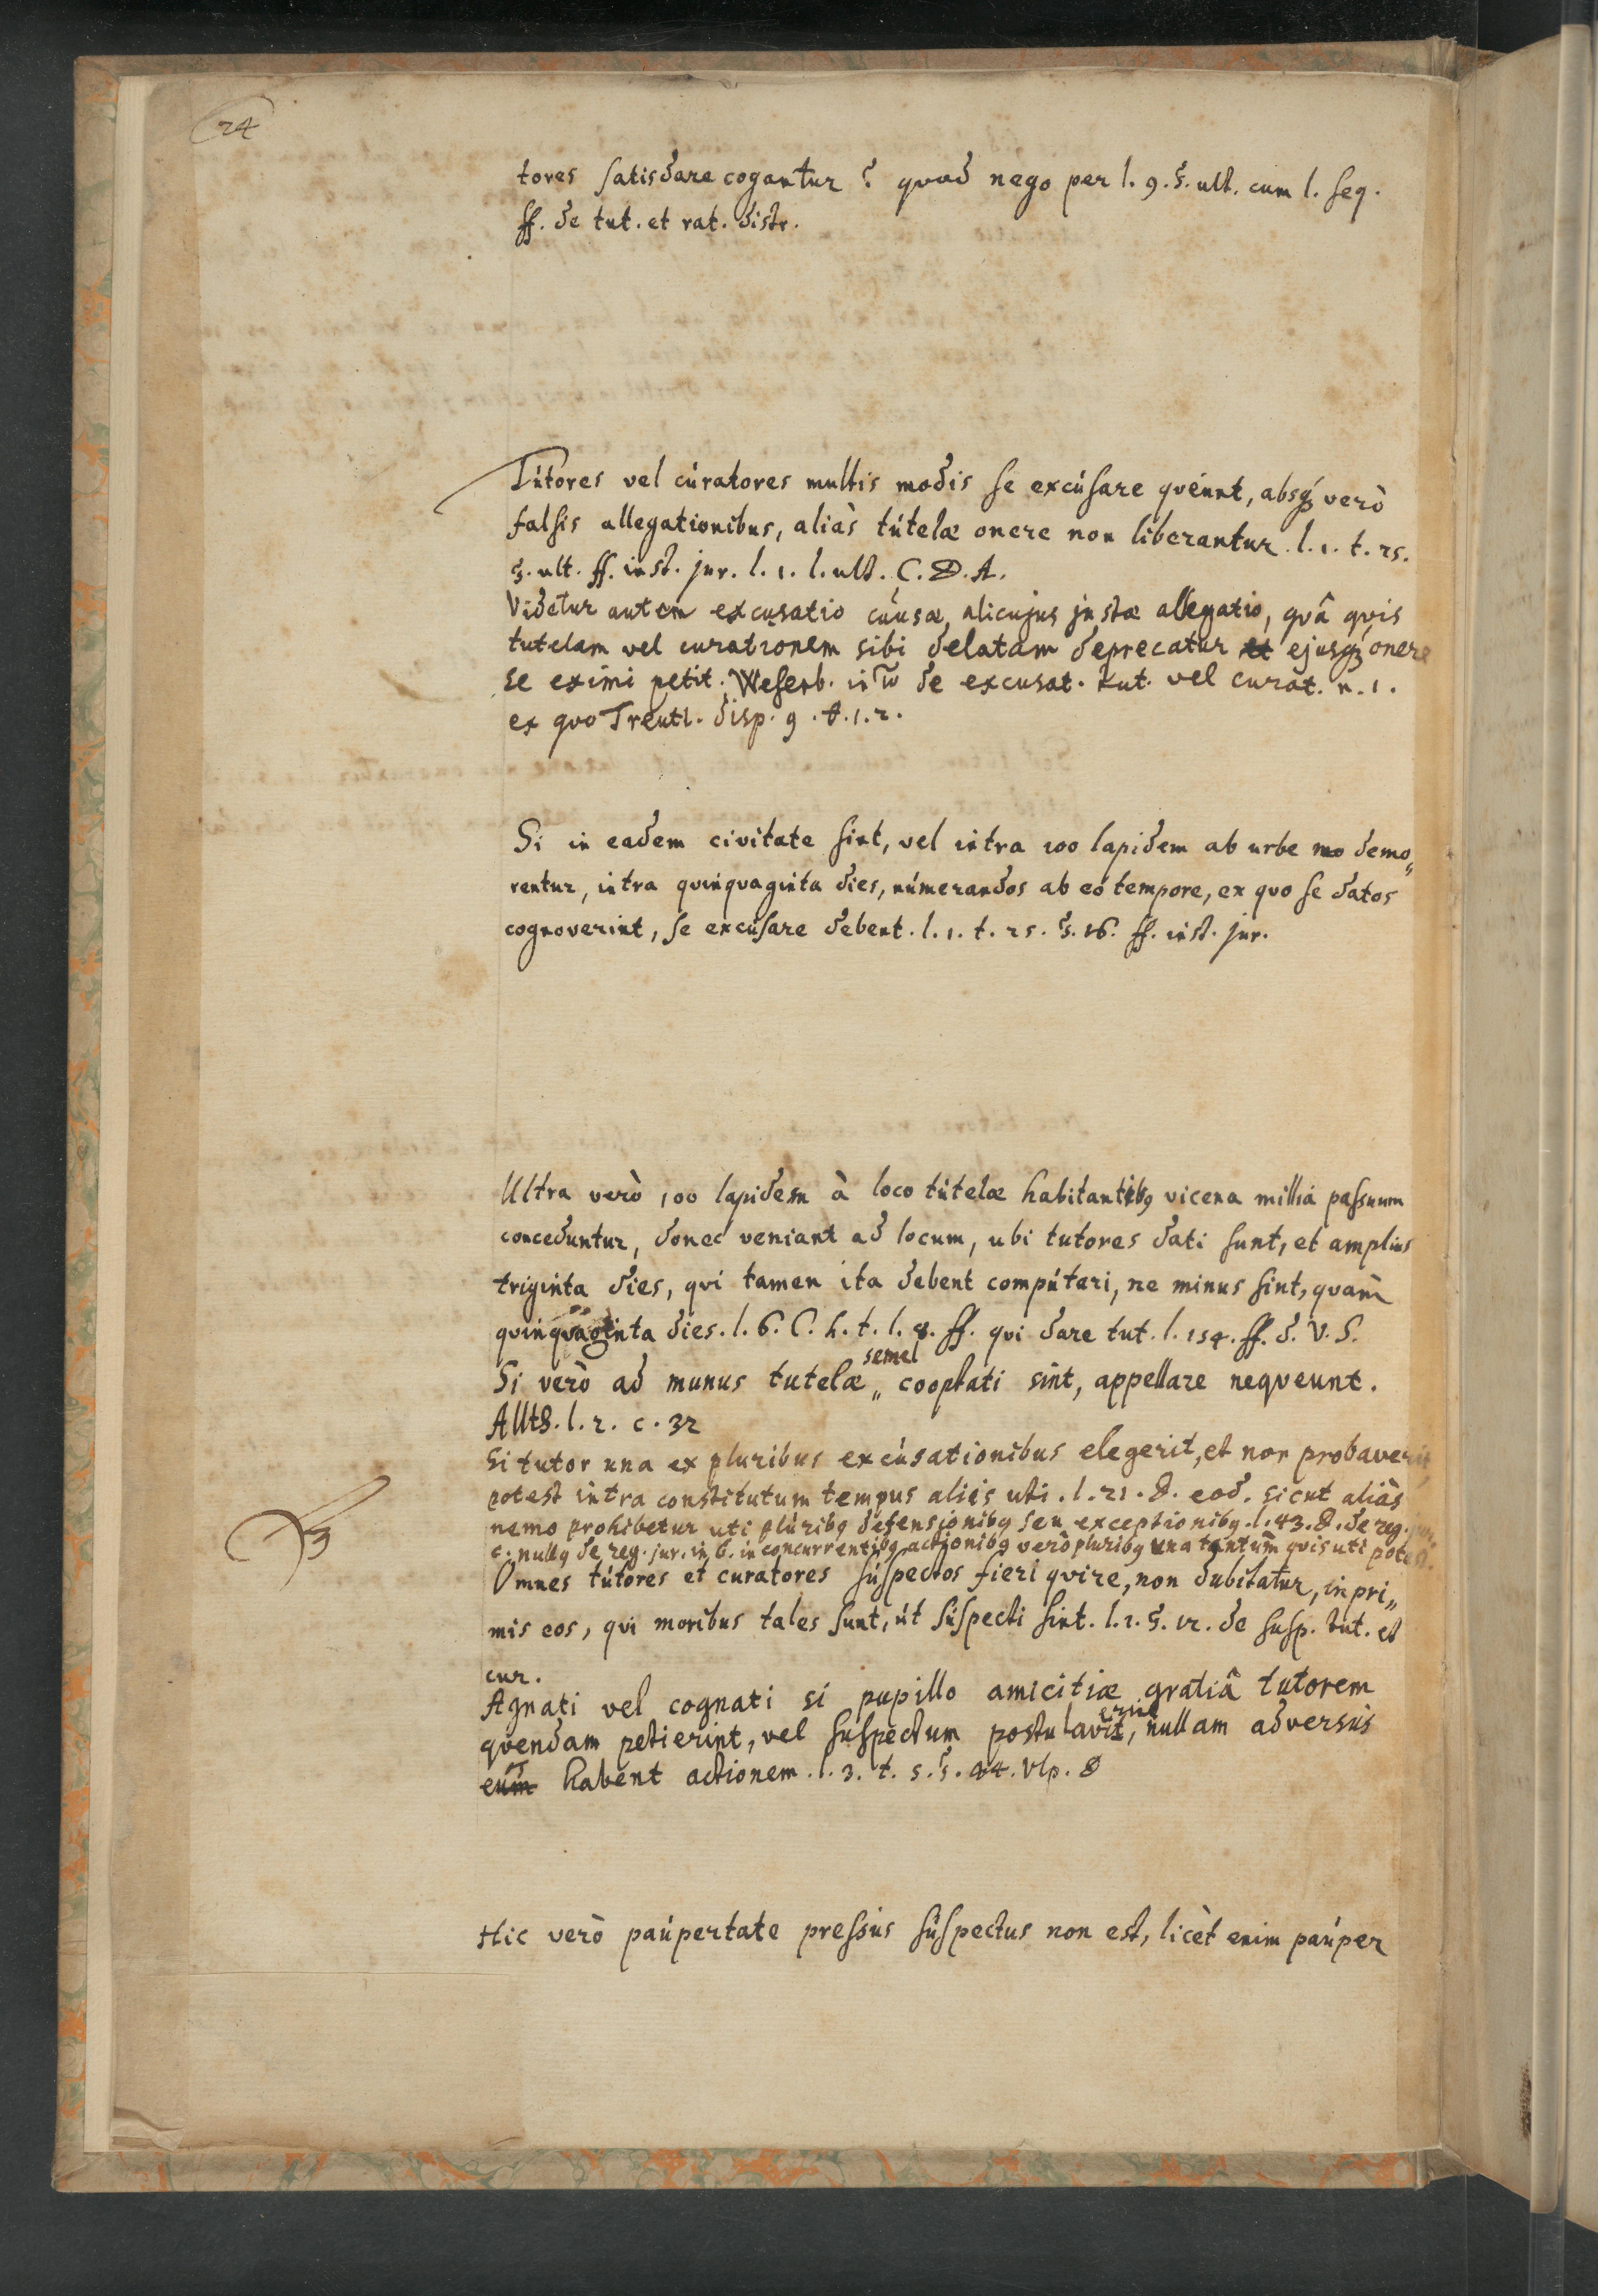 24
tores satisdare cogantur? quod nego per l. 9. §. ult. cum l. seq.
ff. de tut. et rat. distr.
Tútores vel cúratores multis modis se excúsare qveunt, absq́ꝫ verò
falsis allegationibus, aliàs tútelæ onere non liberantur. l. 1. t. 25.
§. ult. ff. inst. jur. l. 1. l. ult. C. D. A.
Videtur autem excusatio causæ, alicujus justæ allegatio, qvâ qvis
tutelam vel curationem sibi delatam deprecatur et ejusq́ꝫ onere
se eximi petit. Weseub. in de excusat. tut. vel curat. n. 1.
ex quo Treutl. disp. 9. t. 1. 2.
Si in eadem civitate sint, vel intra 100 lapidem ab urbe mo demo„
rentur, intra quinquaginta dies, númerandos ab eó tempore, ex quo se datos
cognoverint, se excúsare debent. l. 1. t. 25. §. 16. ff. inst. jur.
Ultra verò 100 lapidem à loco tútelæ habitantibꝰ vicena millia passuum
conceduntur, donec veniant ad locum, ubi tutores dati sunt, et amplius
triginta dies, qvi tamen ita debent compútari, ne minus sint, quàm
quinquaginta dies. l. 6. C. h. t. l. 8. ff. qvi dare tut. l. 154. ff. d. V. S.
semel
Si verò ad munus tutelæ „ cooptati sint, appellare neqveunt.
Allth. l. 2. c. 32
Si tutor una ex pluribus excúsationibus elegerit, et non probaverit,
potest intra constitutum tempus aliis uti. l. 21. D. eod. sicut aliàs
nemo prohibetur uti plúribꝰ defensionibꝰ seu exceptionibꝰ. l. 43. D. de reg. jur.
c. nullꝰ de reg. jur. in 6. in concurrentibꝰ actionibꝰ verò pluribꝰ una tantùm qvis uti potest.
Omnes tútores et curatores súspectos fieri qvire, non dubitatur, inpri„
mis eos, qvi moribus tales sunt, út súspecti sint. l. 1. §. 12. de susp. tut. et
cur.
Agnati vel cognati si pupillo amicitiæ gratiâ tutorem
erint
qvendam petierint, vel suspectum postulavit, nullam adversùs
eum habent actionem. l. 3. t. 5. §. 44. Vlp. D
Hic verò paúpertate pressus súspectus non est, licèt enim paúper